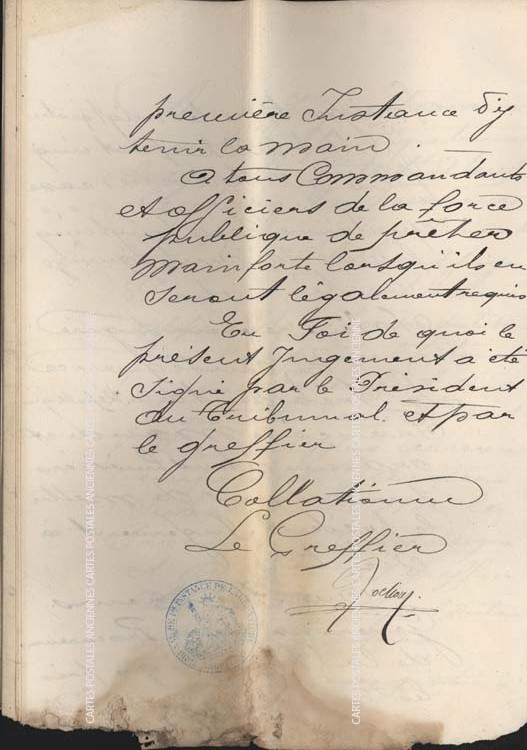 première Instance d'y
tenir la main.
A tous Commandants
et officiers de la force
publique de prêter
main forte lorsqu'ils en
seront légalement requis
En Foi de quoi le
présent Jugement a été
signé par le Président
du Tribunal et par
le greffier
Collationné
Le Greffier
CARTES POSTALES ANCIENNES CARTES POSTALES ANCIENNES
CARTES POSTALES ANCIENNES CARTES POSTALES ANCIENNE